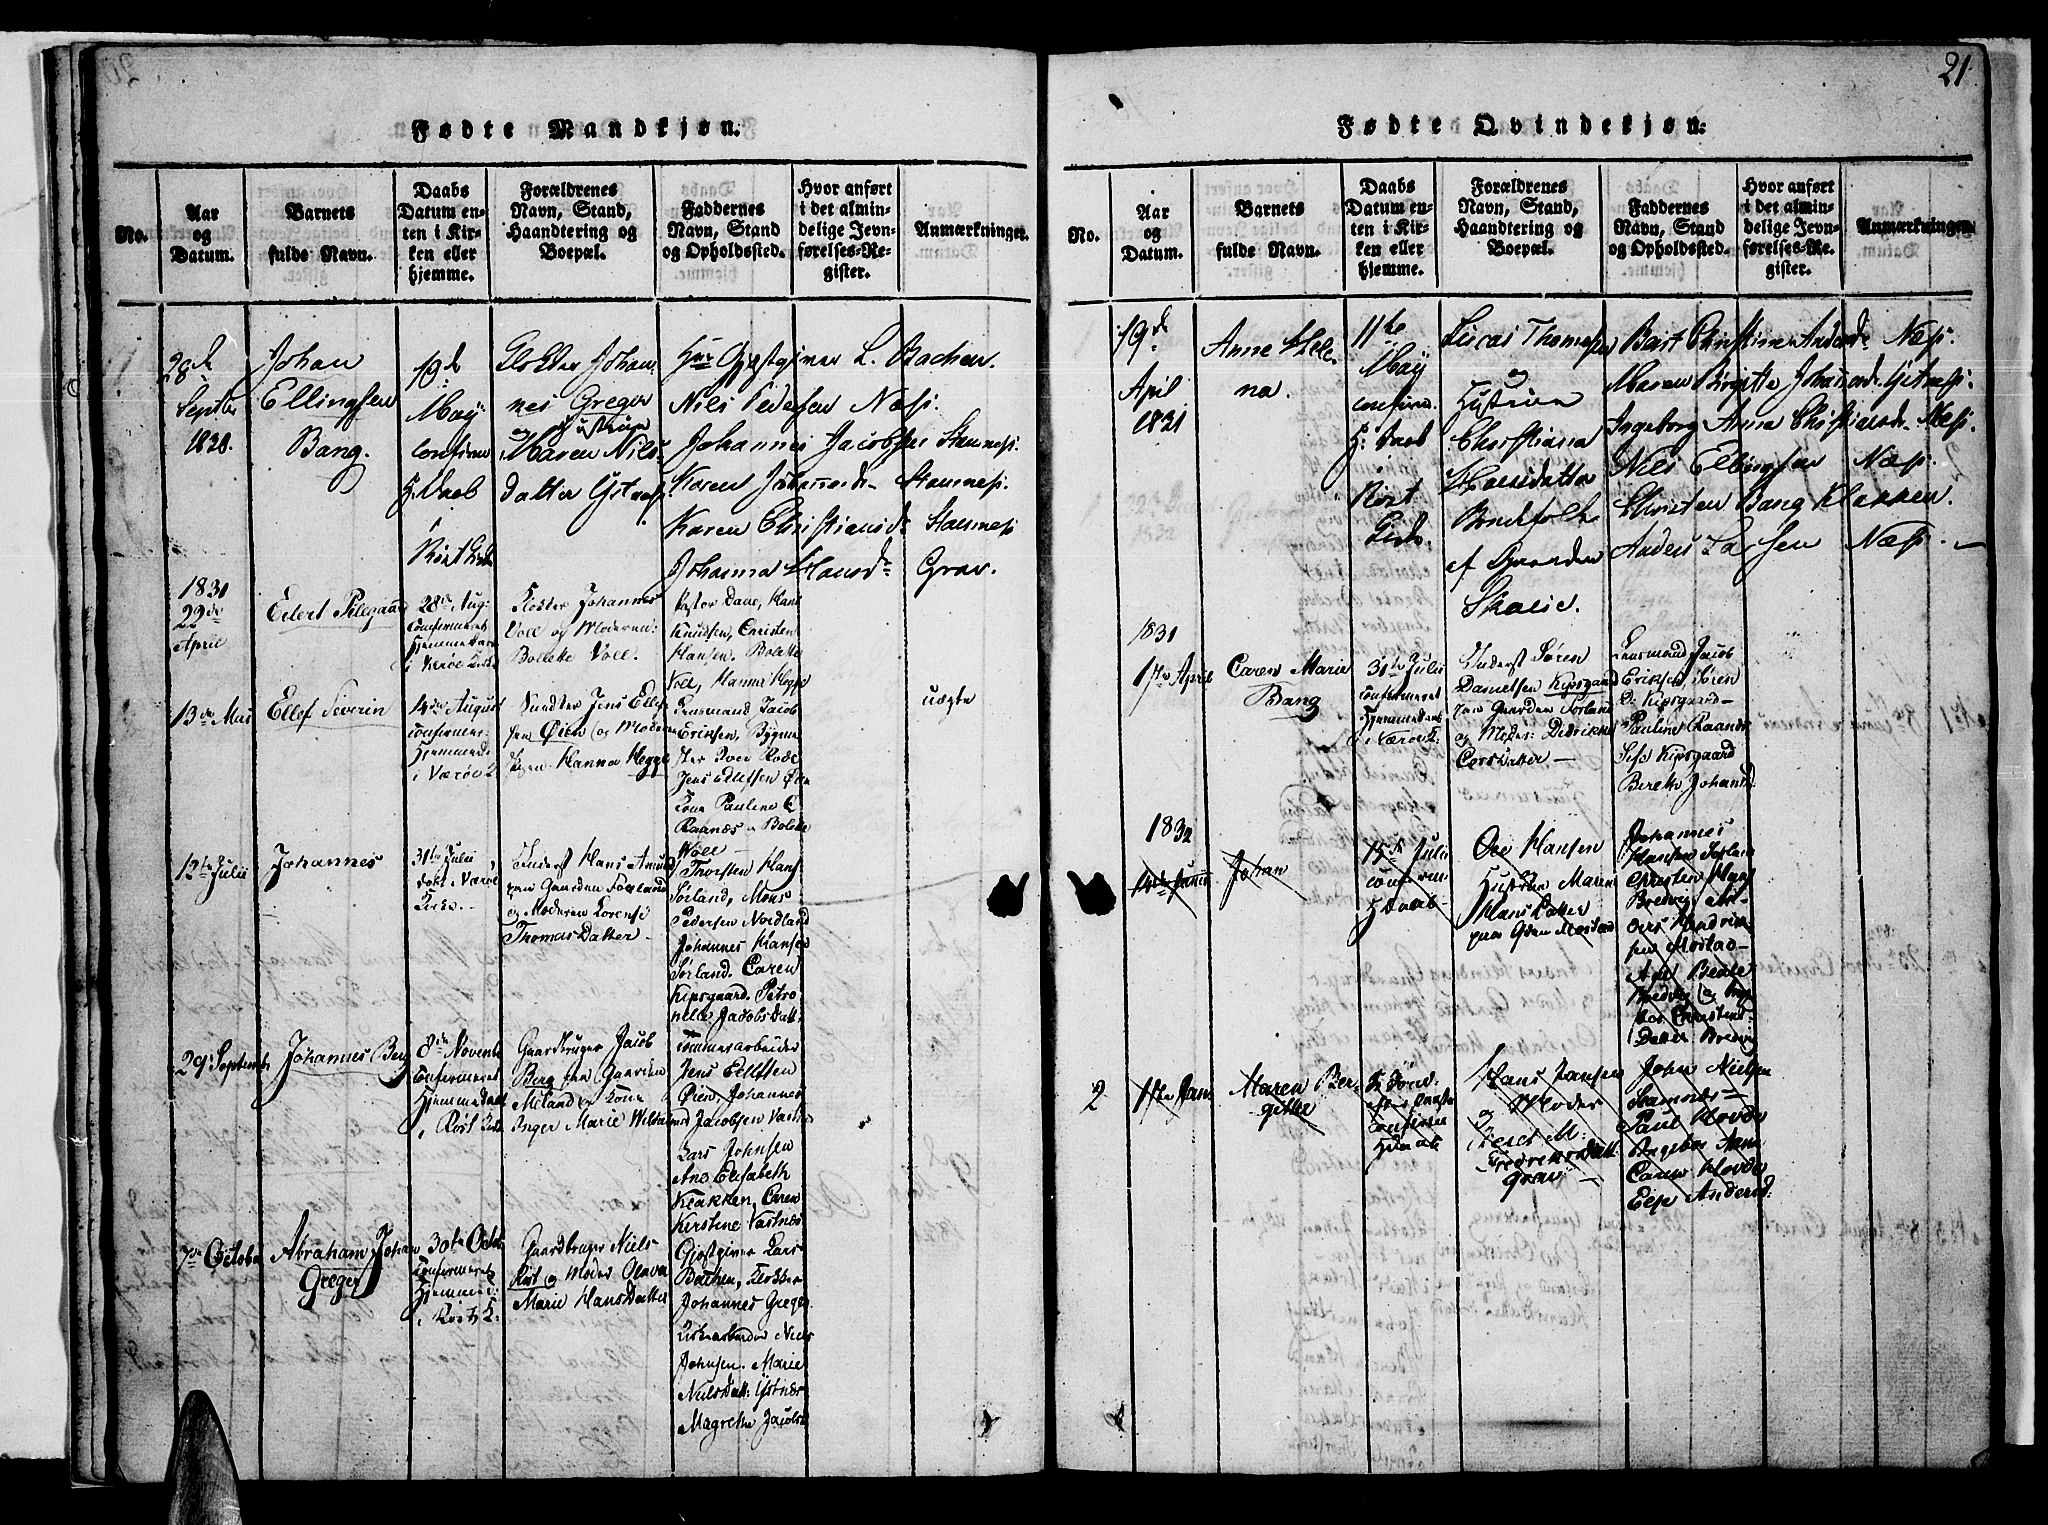 21
Fødte Mandkjøn.
No.
Aar
og
Datum.
Barnets
fulde Navn.
Daabs
Datum en-
ten i Kir-
ken eller
hjemme.
Forældrenes
Navn, Stand,
Haandtering og
Boepæl.
Faddernes
Navn, Stand
og Opholdssted.
Hvor anført
i det almin-
delige Jevn-
førelses-Re-
gister.
Anmærkninger.
28de
Septbr
1830.
Johan
Ellingsen
Bang.
19de
May
confirm
H: Daab
i
Røst Kirke
Klokker Johan-
nes Greger
og Hustrue
Maren Nils-
datter Ystnes.
Hr Gjestgiver L. Bachen.
Nils Pedersen Næss.
Johannes Jacobsen Stamnes.
Karen Johansd. Stamnes.
Karen Christiansd. Stamnes.
Johanna Hansd. Grav.
1831
22de
April
Eilert Pilegaard
28de Aug:
confirmeret
Hjemmedaab
i Værøe Kirke
Klokker Johannes
Voll og Moderen
Bolette Voll.
Pastor Daae, Hans
Knudsen, Christen
Hansen. Bolette
Voll, Hanna Hegge
13de Mai
Ellef Severin
14de August
confirmer:
Hjemmed:
i Værøe K.
Jens Ellef-
sen Øien og Moderen
Pigen Hanna Hegge
Lensmand Jacob
Eriksen, Bygme-
ster Iver Rode
Jens Ellefsen Øien
Kone Pauline C
Raanæs, Bolette
Woll —
uægte
12te Julii
Johannes
31te Julii
døbt i Værøe
Kirke. —
Inderst Hans Amund
paa Gaarden Sørland
og Moderen Lorense
Thomas Datter —
Thorsten Hans
Sørland, Mons
Pedersen Nordland
Johannes Hansen
Sørland. Caren
Kipsgaard. Petro-
nelle Jacobs Datt.
29de Septembr
Johannes Berg
8de Novembr
Confirmeret
Hjemmedaab
i Røst Kirke
Gaardbruger Jacob
Berg paa Gaarden
og Kone
Inger Marie
Tømmerarbeider
Jens Ellefsen
Øien, Johannes
Jacobsen Vastnæs
Lars Johnsen
Ane Elisabeth
Klakken, Caren
Kirstine Vastnæs
7de October
Abraham Johan
Greger
30te Octob
Confirmeret
Hjemmed:
i Røst K:
Gaardbruger Niels
Røst og Moder Olava
Marie Hans Datter
Gjestgiver Lars
Bachen, Klokker
Johannes Greger
Niels
Johnsen. Marie
Nielsdatt: Ystnæs
Magrethe Jacobsd
Fødte Qvindekjøn.
No.
Aar
og
Datum.
Barnets
fulde Navn.
Daabs
Datum en-
ten i Kir-
ken eller
hjemme.
Forældrenes
Navn, Stand,
Haandtering og
Boepæl.
Faddernes
Navn, Stand
og Opholdssted.
Hvor anført
i det almin-
delige Jevn-
førelses-Re-
gister.
Anmærkninger.
19de
April
1831
Anne Hele-
na.
11te
May
confirm.
H: Daab
i
Røst
Kirke.
Lucas Thomesen
og
Hustrue
Christiana
Hansdatter
Bondefolk
af Gaarden
Skalie.
Berit Christine Andersd. Næss.
Maren Birgitte Johansd. Ystnes.
Ingeborg Anna Christiansd. Næss.
Nils Ellingsen Næss.
Christen Bang Klakken.
Anders Larsen Næss. —
1831
17de April
Caren Marie
Bang
31te Julii
confirmeret
Hjemmedaab
i Værøe K:
Inderst Søren
Danielsen Kipsgaard
paa Gaarden Sørland
og Moder: Didrikke
Lars Datter —
Lensmand Jacob
Eriksen, Søren
D: Kipsgaard —
Pauline Raanæs
Siss Kipsgaard
Bereth Johansd
1832
14de Junii
Johan
15de Julii
confirm
H Daab —
Ole Hansen
Hustru Maren
Hans Datter
paa Gaarden Mostad
Johannes
Hansen Sørland
Christen Hans
Bredvig
Lars Hendrik-
sen Mostad —
Ane Beate
Bredvig og
Christens
Datter Bredvig
2
Maren Ber-
gitte
Hans Jansen
og Moder
M:
Fredriks Datt:
Grav —
John Nielsen
Stamnes —
Paul Hovde
Ingebor Anne
Caren Hovde
Else Andersd: